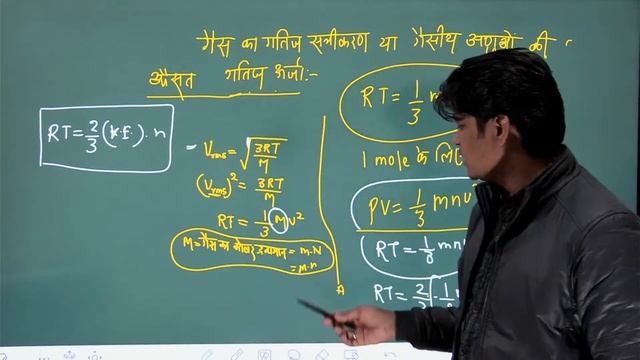 गैस का गतिज समीकरण या गैसीय अणुओं की
औसत गतिज ऊर्जा :-
RT = 2/3 (k.E.) . n
Vrms = √3RT/M
(Vrms)² = 3RT/M
RT = 1/3 M v²
M = गैस का मोलर द्रव्यमान = m.N
= m.n
RT = 1/3 m
1 mole के लिए
PV = 1/3 mnv
RT = 1/3 mnv
RT = 2/3
A